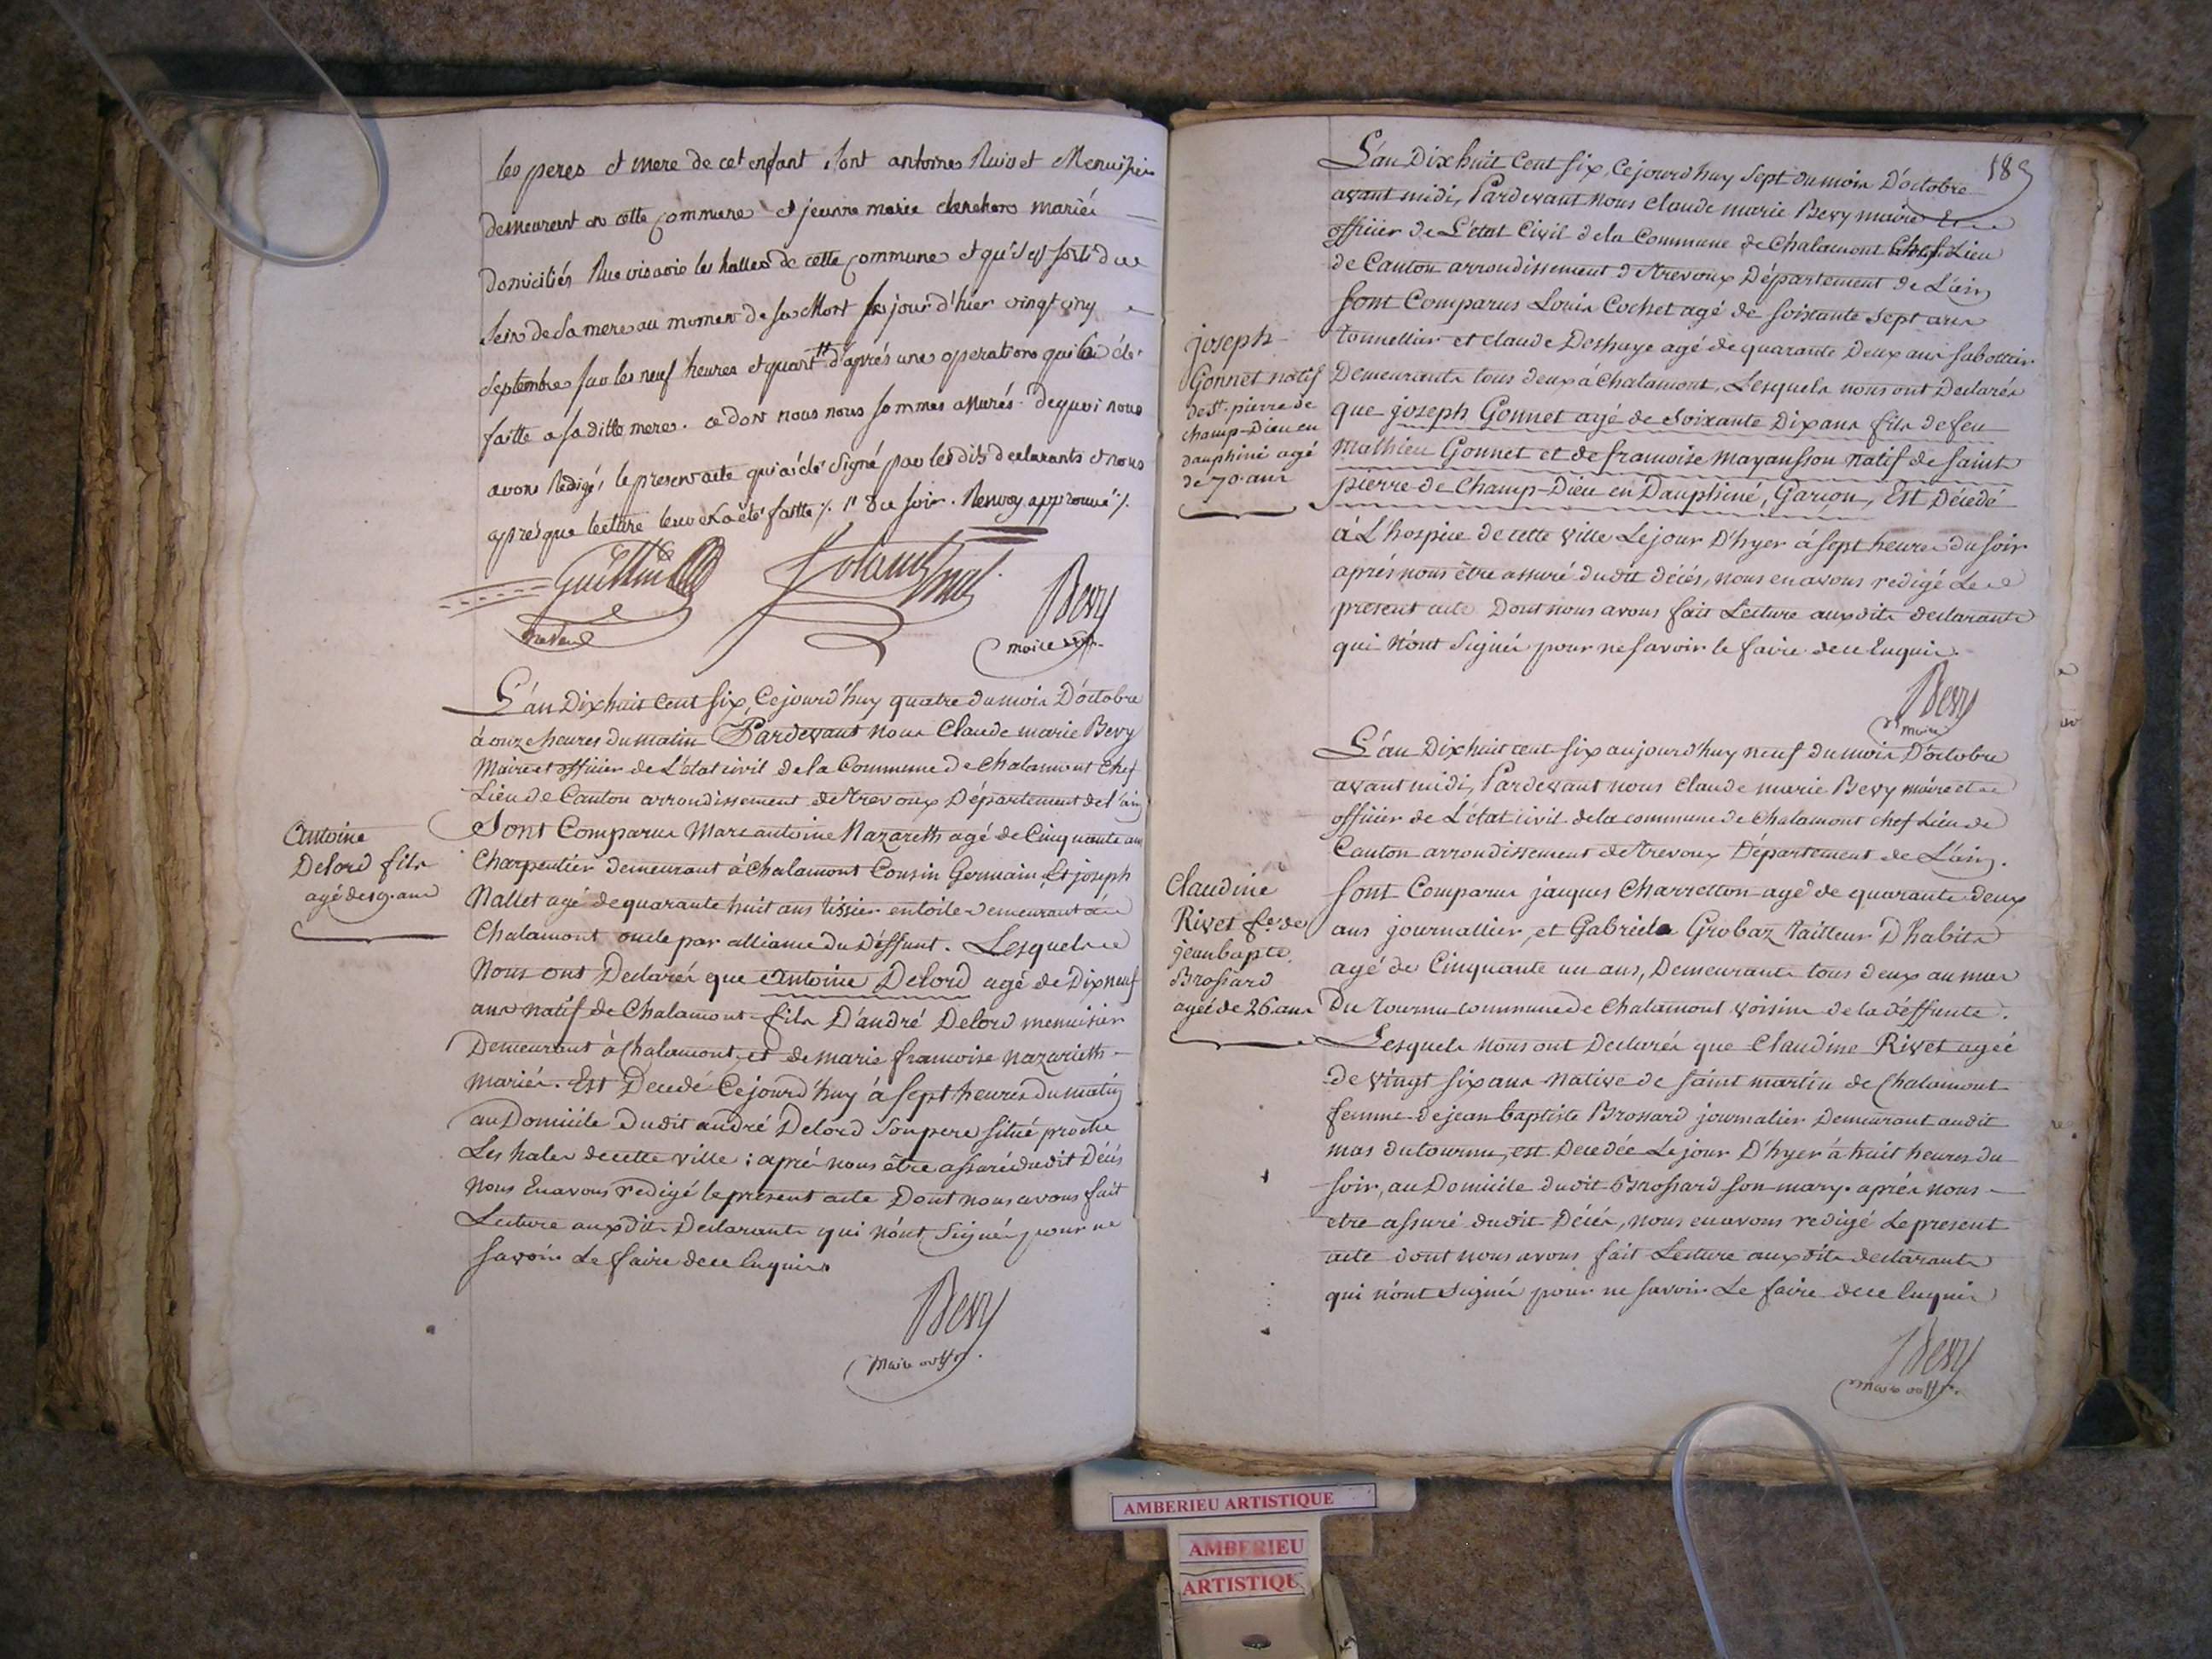 les peres et mere de cet enfant sont antoine Ruivet Menuisier
demeurent en cette commune et jeanne marie clerchere mariés
domiciliés Rue vis avis les halles de cette commune et qu'il est sorti du
sein de sa mere au moment de sa Mort le jour d'hier vingt cinq
septembre sur les neuf heures et quart d'après une operation qui lui a été
faitte a sa ditte mere. ce dont nous nous sommes assurés. de quoi nous
avons Redigé le present acte qui a été signé par les dits declarants et nous
après que lecture leur en a été faitte ./. du soir. Renvoy approuvé ./.
Bevy
maire
L'an Dix huit Cent six, Cejourd'huy quatre du mois D'octobre
à onze heures du matin Pardevant nous Claude marie Bevy
Maire et officier de L'état civil de la Commune de Chalamont Chef
Lieu de Canton arrondissement de trevoux Département de l'ain
Sont Comparus Marc antoine Nazareth agé de Cinquante ans
Charpentier demeurant à Chalamont Cousin Germain, Et joseph
Nallet agé de quarante huit ans tissier en toile demeurant à
Chalamont oncle par alliance du Déffunt. Lesquels
Nous ont Declarés que Antoine Delord agé de Dix neuf
ans natif de Chalamont fils D'andré Delord menuisier
Demeurant à Chalamont, et de marie francoise nazarieth
mariés. Est Decedé Cejourd'huy à sept heures du matin
au Domicile Dudit andré Delord Son pere situé proche
Les hales de cette ville ; aprés nous être assuré dudit Décés
Nous En avons redigé le présent acte Dont nous avons fait
Lecture auxdits Declarants qui n'ont Signés pour ne
savoir Le faire de ce Enquis
Antoine
Delord fils
agé de 19 ans
Bevy
Maire
185
L'an Dix huit Cent six, Cejourd'huy sept du mois D'octobre
avant midi, Pardevant nous Claude marie Bevy maire Et
officier de L'état Civil de la Commune de Chalamont Chef Lieu
de Canton arrondissement de trevoux Département de L'ain
Sont Comparus Louis Cochet agé de soixante sept ans
tonnellier et claude Deshaye agé de quarante Deux ans sabottier
Demeurants tous deux à Chalamont, Lesquels nous ont Declarés
que joseph Gonnet agé de soixante Dix ans fils de feu
Mathieu Gonnet et de francoise Mayansson natif de saint
pierre de Champ-Dieu en Dauphiné, Garcon, Est Décedé
à L'hospice de cette ville Le jour D'hyer à sept heures du soir
aprés nous être assuré dudit décés, nous en avons redigé Le
présent acte Dont nous avons fait Lecture auxdits declarants
qui n'ont Signés pour ne savoir le faire de ce Enquis
joseph
Gonnet natif
de St. pierre de
champ-Dieu en
dauphiné agé
de 70 ans
Bevy
maire
L'an Dix huit cent six aujourd'huy neuf du mois D'octobre
avant midi, Pardevant nous Claude marie Bevy maire et
officier de L'état civil de la commune de Chalamont chef Lieu de
Canton arrondissement de trevoux Département de L'ain.
Sont Comparus jacques Charretton agé de quarante deux
ans journallier, et Gabriel Grobaz tailleur D'habits
agé de Cinquante un ans, Demeurants tous deux au mas
Du tournu commune de Chalamont voisins de la déffunte.
Lesquels nous ont Declarés que Claudine Rivet agée
de vingt six ans Native de saint martin de Chalamont
femme de jean baptiste Brossard journalier Demeurant audit
mas du tournu, est Decedée Le jour D'hyer à huit heures du
soir, au Domicile dudit Brossard son mary. aprés nous
etre assuré dudit Décés, nous en avons redigé Le present
acte dont nous avons fait Lecture auxdits declarants
qui n'ont signés pour ne savoir Le faire de ce Enquis
Claudine
Rivet fe. de
jean bapte.
Brossard
agée de 26 ans
Bevy
maire
AMBERIEU ARTISTIQUE
AMBERIEU
ARTISTIQUE